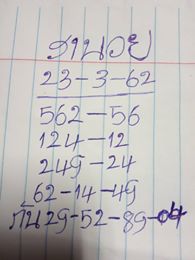 ฮานอย
23-3-62
562-56
124-12
249-24
62-14-49
กัน29-52-89-04